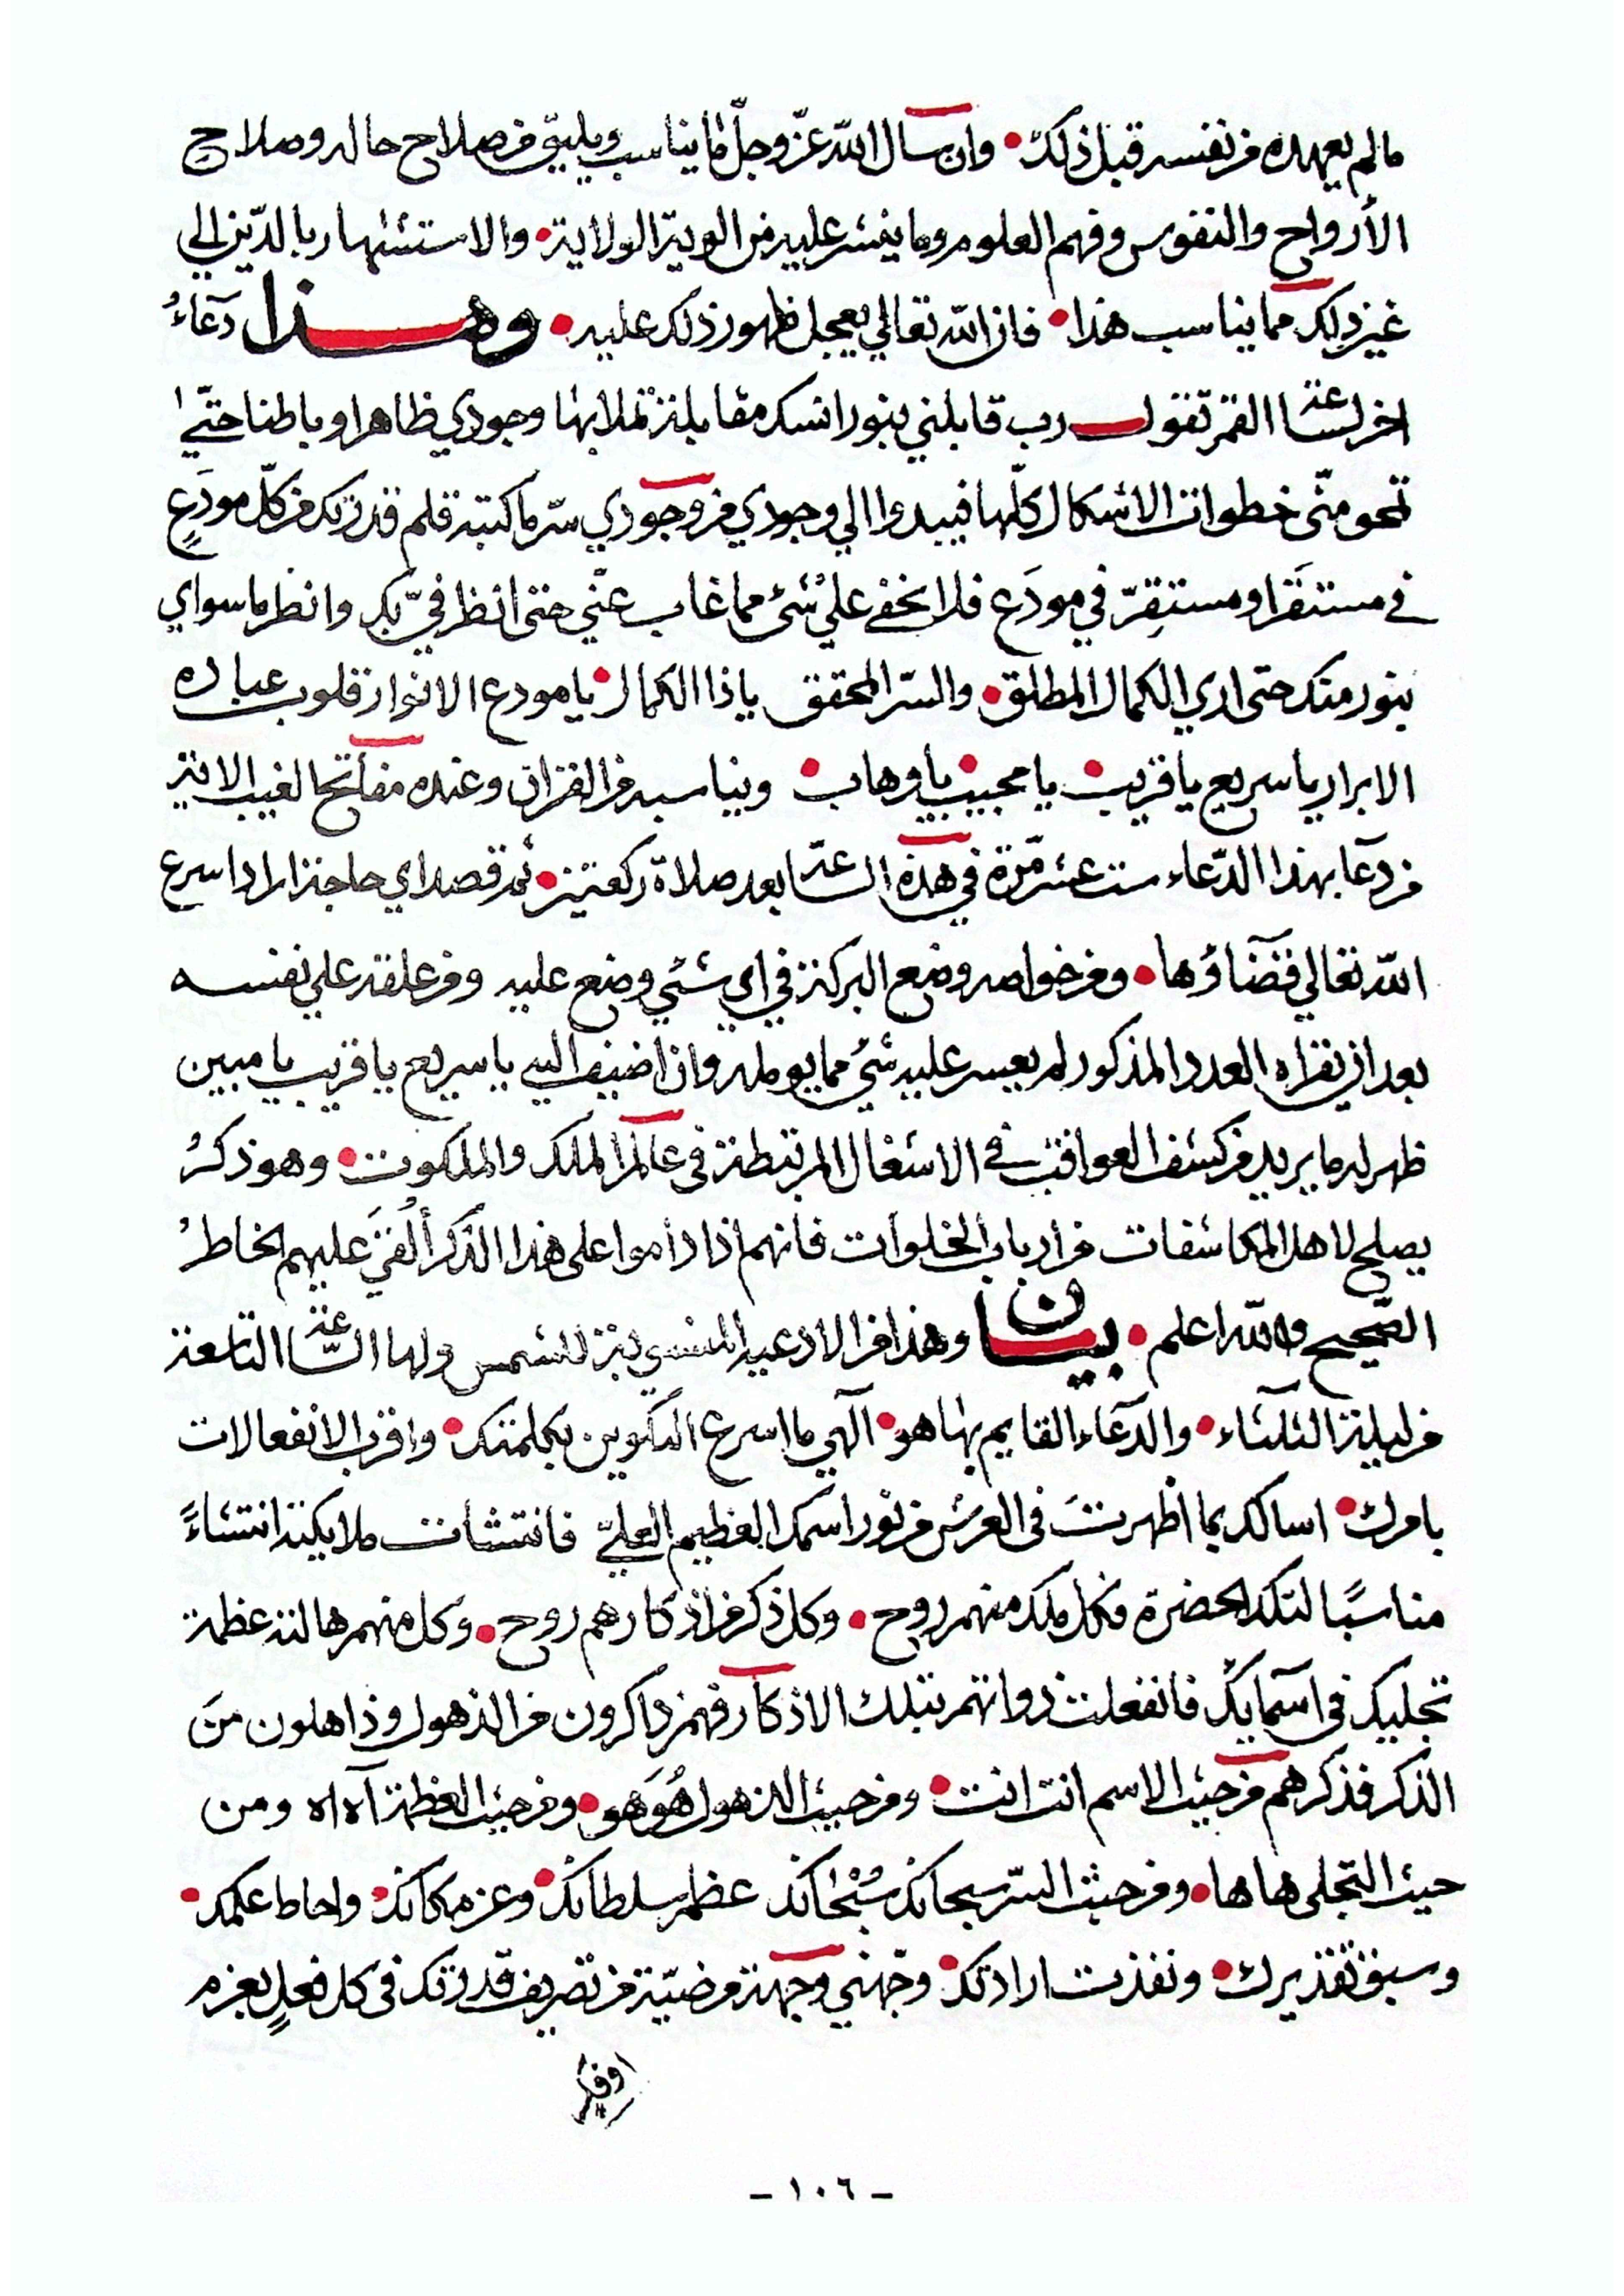 مالم يعهده من نفسه قبل ذلك • وان سال الله عزّ وجلّ لما يناسب ويليق من صلاح حاله وصلاح
الأرواح والنفوس وفهم العلوم وما ينشر عليه من الوية الولاية • والاستشهار بالدّين الي
غير ذلك مما يناسب هذا • فان الله تعالي يعجل ظهور ذلك عليه • وهذا دعاءُ
اخر لساعة القمر تقول رب قابلني بنور اسمك مقابلة تملا بها وجودي ظاهرا وباطنا حتّي
تمحو منّي خطوات الاشكال كلّها فيبدوا الي وجودي من وجودي سرّ ما كتبه قلم قدرتك من كلّ مودَعٍ
في مستقَر ومستقِرّ في مودَع فلا يخفي علي شئ مما غاب عنّي حتى انظر فيّ بك وانظر ما سواي
بنور منك حتى اري الكمال المطلق • والسّر المحقق ياذا الكمال • يا مودع الانوار قلوب عباده
الابرار يا سريع يا قريب • يا مجيب • يا وهاب • ويناسبه من القران وعنده مفاتح الغيب الاية
من دعا بهذا الدّعاء ست عشر مرّة في هذه الساعة بعد صلاة ركعتين • ثم قصد اي حاجة اراد اسرع
الله تعالي قضآؤها • ومن خواصه وضع البركة في اي شئي وضع عليه ومن علقه علي نفسه
بعد ان يقراه العدد المذكور لم يعسر عليه شئ مما يومله وان اضيف اليه يا سريع يا قريب يا مبين
ظهر له ما يريد من كشف العواقب في الاشغال المرتبطة في عالم الملك والملكوت • وهو ذكرُ
يصلح لاهل المكاشفات من ارباب الخلوات فانهم اذا داموا على هذا الذكر أُلْقيَ عليهم الخاطرُ
الصّحيح والله اعلم • بيان وهذا من الادعيه المنسوبة للشمس ولها السّاعة التاسعة
من ليلة الثلثاء • والدّعاء القايم بها هو • آلهي ما اسرع التكوين بكلمتك • واقرب الانفعالات
بامرك • اسالك بما اظهرت في العرش من نور اسمك العظيم العليّ فانتشأت ملايكتة انتشاءً
مناسبًا لتلك الحضرة فكل ملك منهم روح • وكل ذكر من اذكارهم روح • وكل منهم هالته عظمة
تجليك في اسمايك فانفعلت ذواتهم بتلك الاذكار فهم ذاكرون من الذهول وذاهلون منَ
الذكر فذكرهم من حيث الاسم انت انت • ومن حيث الذهول هُوَ هو • ومن حيث العظمة آه اه ومن
حيث التجلى ها ها • ومن حيث السّر سبحانك سُبْحَانك عظم سلطانك • وعز مكانك • واحاط علمك •
وسبق تقديرك • ونفذت ارادتك • وجّهني وجهة مرضيّة من تصريف قدرتك في كل فعلٍ بعزم
او فكر
- ١٠٦ -